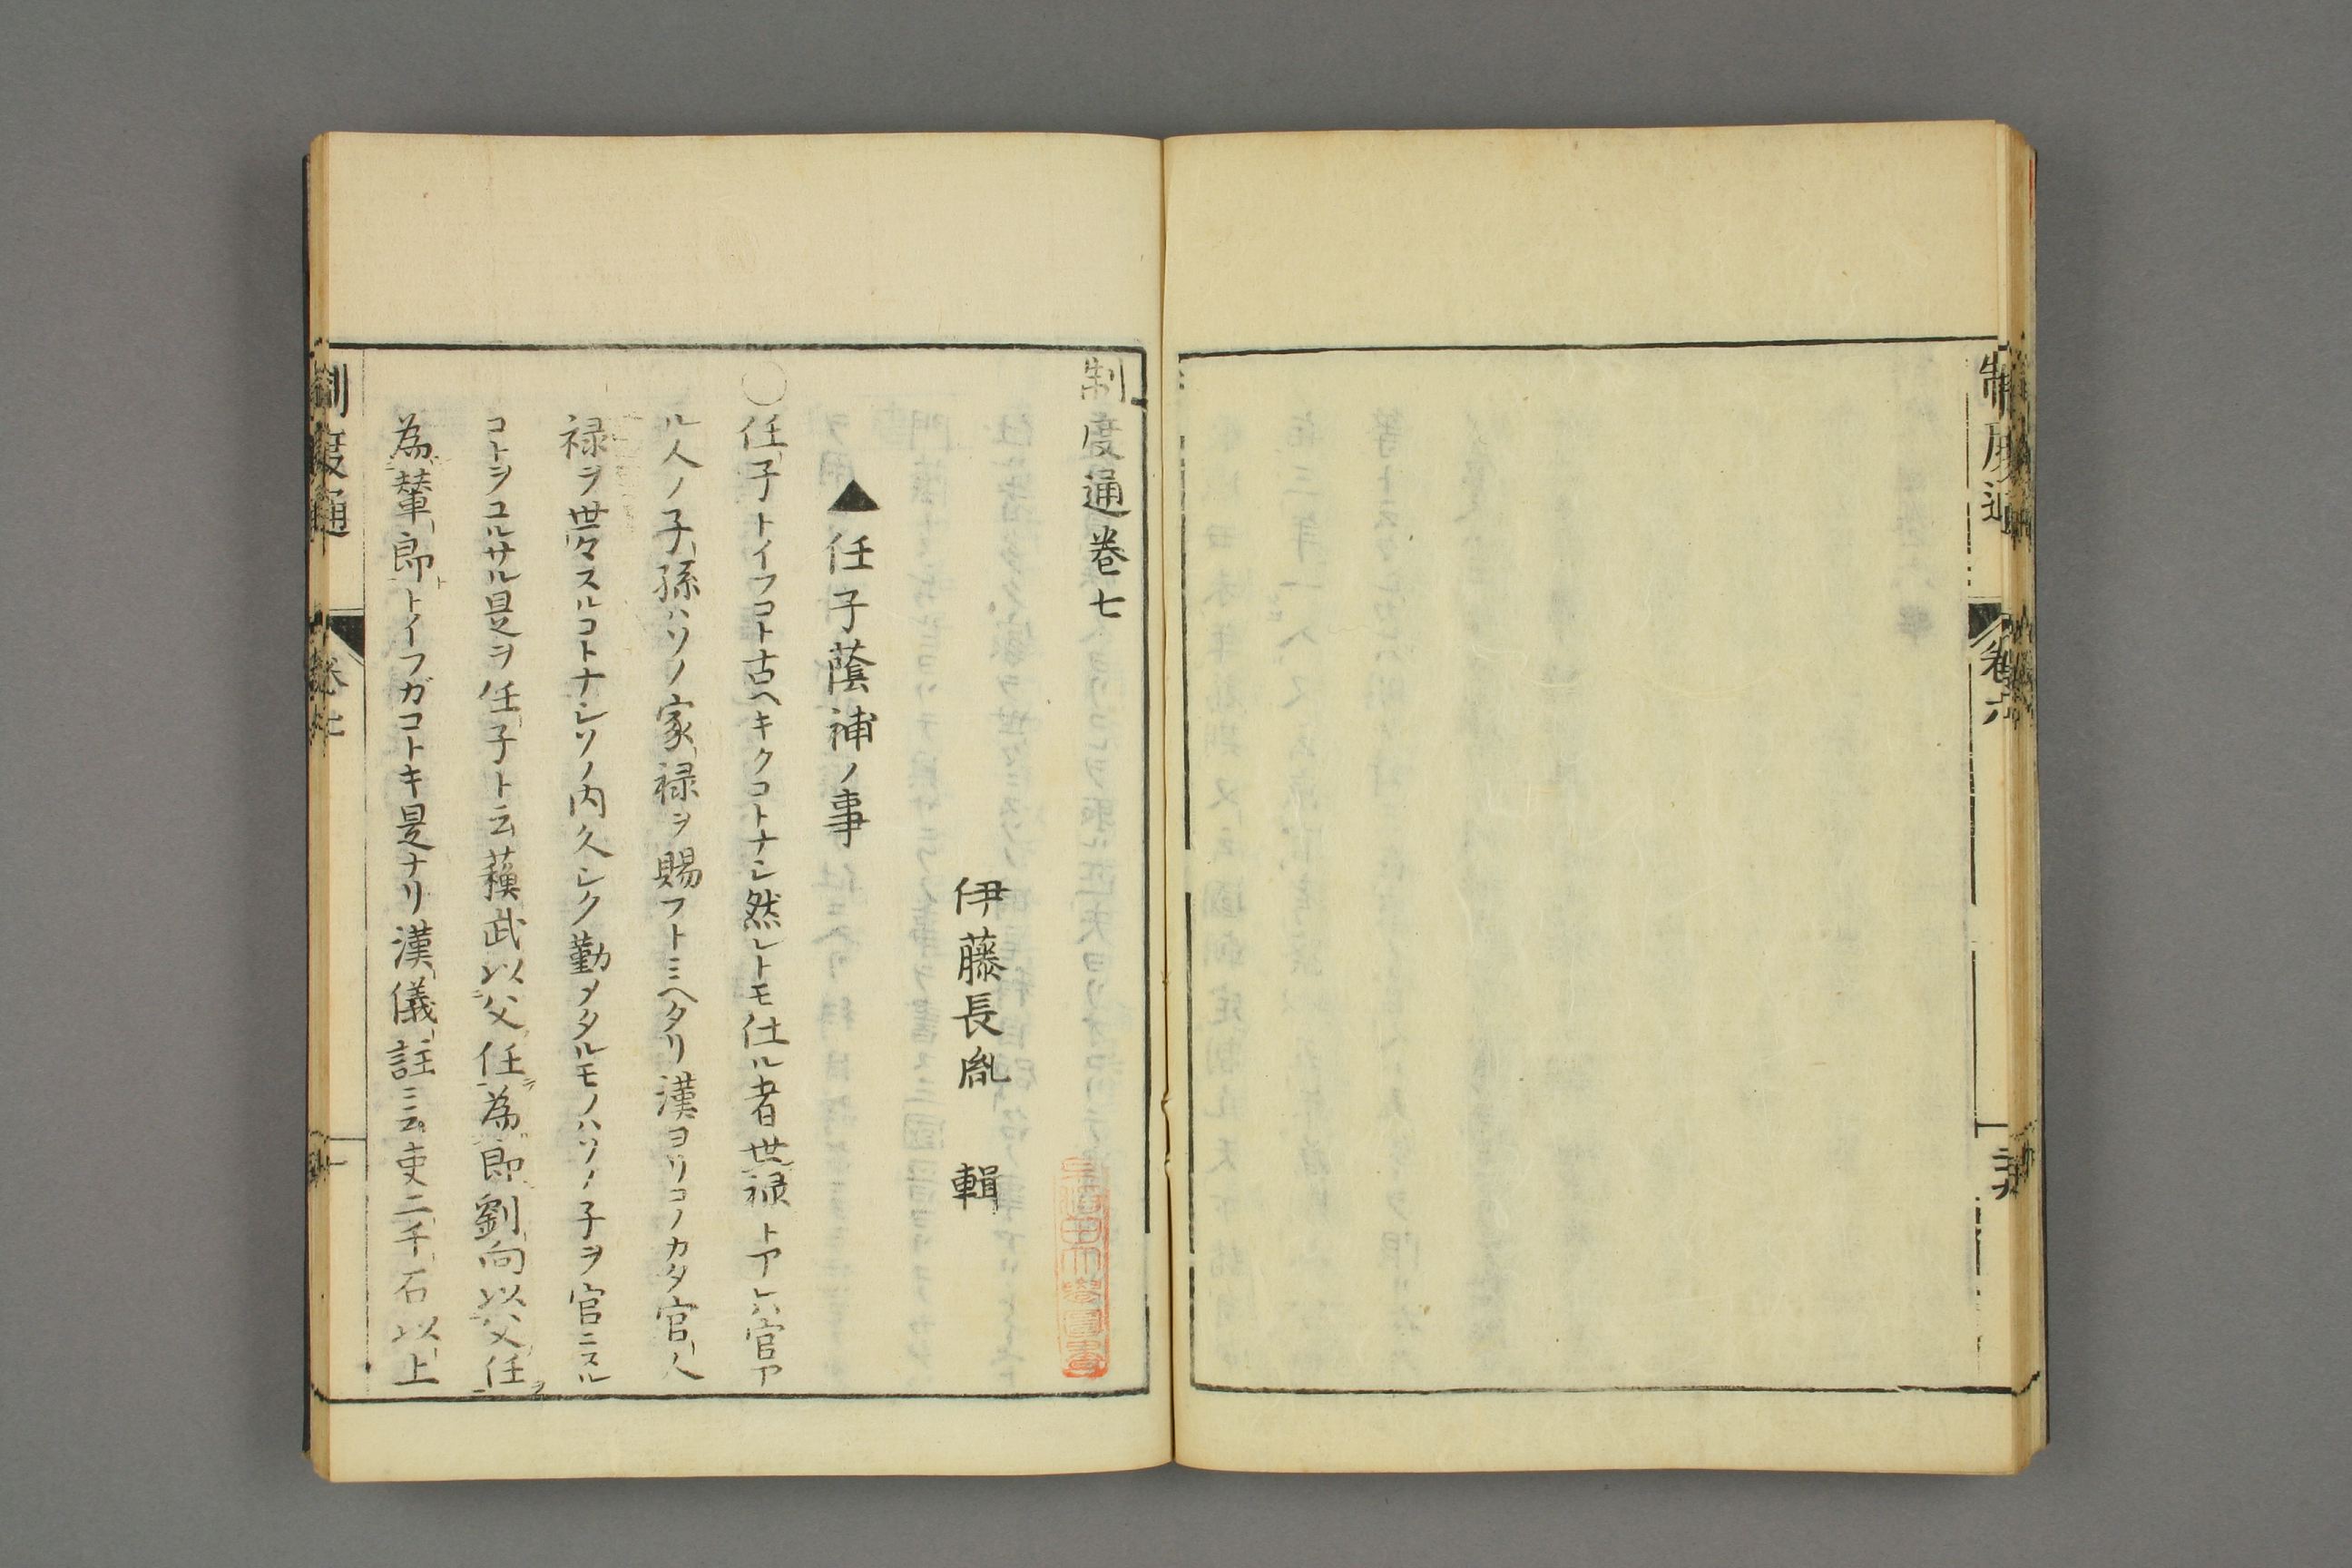 制度通
卷六
制度通卷七
伊藤長胤　輯
▲任子蔭補ノ事
〇任子トイフコト古ヘキクコトナシ然レトモ仕ル者世禄トアレハ官ア
ル人ノ子孫ハソノ家禄ヲ賜フトミヘタリ漢ヨリコノカタ官人
禄ヲ世々スルコトナシソノ内久シク勤メタルモノハソノ子ヲ官ニスル
コトヲユルサル是ヲ任子ト云蘓武以父任為郎劉向以父任
為輦郎トイフガコトキ是ナリ漢儀註ニ云吏二千石以上
制度通
卷七
一